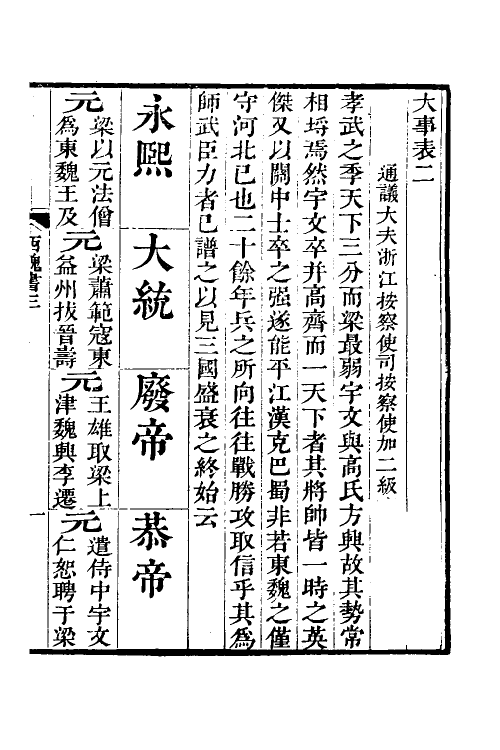 大事表二
通議大夫浙江按察使司按察使加二級
孝武之季天下三分而梁最弱宇文與高氏方興故其勢常
相埒焉然宇文卒并高齊而一天下者其將帥皆一時之英
傑又以關中士卒之强遂能平江漢克巴蜀非若東魏之僅
守河北已也二十餘年兵之所向往往戰勝攻取信乎其爲
師武臣力者已譜之以見三國盛衰之終始云
永熙
大統
廢帝
恭帝
元
梁以元法僧
爲東魏王及
元
梁蕭範寇東
益州拔晉壽
元
王雄取梁上
津魏興李遷
元
遣侍中宇文
仁恕聘于梁
西魏書三
一